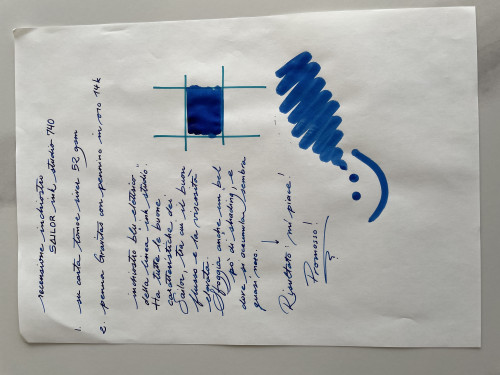 recensione inchiostro
SAILOR ink studio 740
1. su carta tomoe river 52 gsm
2. penna Gravitas con pennino in oro 14k
inchiostro blu elettrico
della linea "ink studio".
Ha tutte le buone
caratteristiche dei
Sailor, tra cui il buon
flusso e la
elevata.
Sfoggia anche un bel
pò di shading, e
dove si accumula sembra
quasi nero.
Risultato: mi piace!
Promosso!